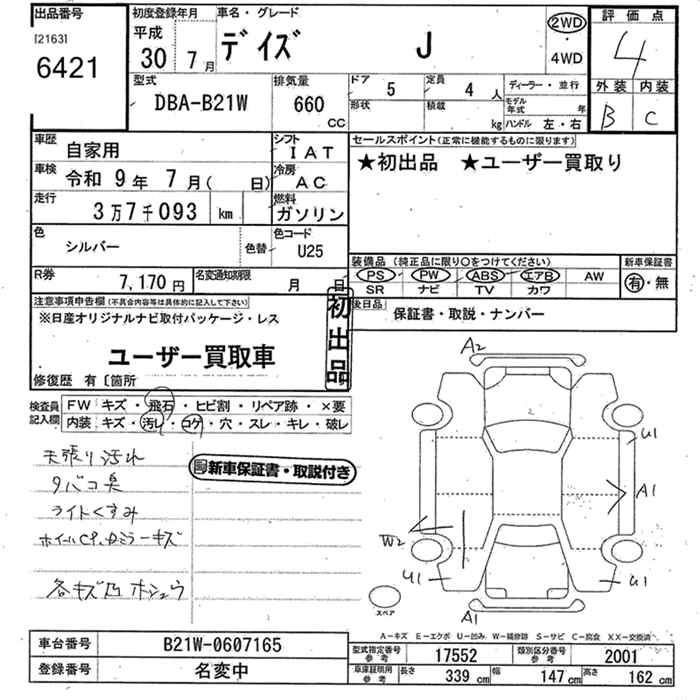 出品番号 初度登録年月 車名・グレード 評価点
[2163] 平成 2WD
6421 30年7月 デイズ J ・ 4
4WD
外装 内装
B C
型式 排気量 ドア 定員 ディーラー・並行
DBA-B21W 660 5 4 人
cc 形状 積載 kg モデル年式 年
ハンドル 左・右
車歴 自家用 シフト IAT
セールスポイント(正常に機能するものに限ります)
★初出品 ★ユーザー買取り
車検 令和 9年 7月( 日) 冷房 AC
走行 3万7千093 km 燃料 ガソリン
色 シルバー 色替 色コード U25
装備品(純正品に限り○をつけてください) 新車保証書
PS PW ABS エアB AW 有・無
SR ナビ TV カワ
R券 7,170円 名変通知期限 月 日
後日品 保証書・取説・ナンバー
注意事項申告欄(不具合内容等は具体的に記入して下さい)
※日産オリジナルナビ取付パッケージ・レス
初出品
ユーザー買取車
修復歴 有〔箇所
検査員記入欄 FW キズ・飛石・ヒビ割・リペア跡・×要
内装 キズ・汚レ・コゲ・穴・スレ・キレ・破レ
天張り汚れ
新車保証書・取説付き
タバコ臭
ライトくすみ
各キズ凹 ホシュウ
A2
U1
A1
W2
U1
U1
A1
スペア
A-キズ E-エクボ U-凹み W-補修跡 S-サビ C-腐食 XX-交換済
車台番号 B21W-0607165
登録番号 名変中
型式指定番号 参考 17552 類別区分番号 参考 2001
車庫証明用 参考 長さ 339 cm 幅 147 cm 高さ 162 cm